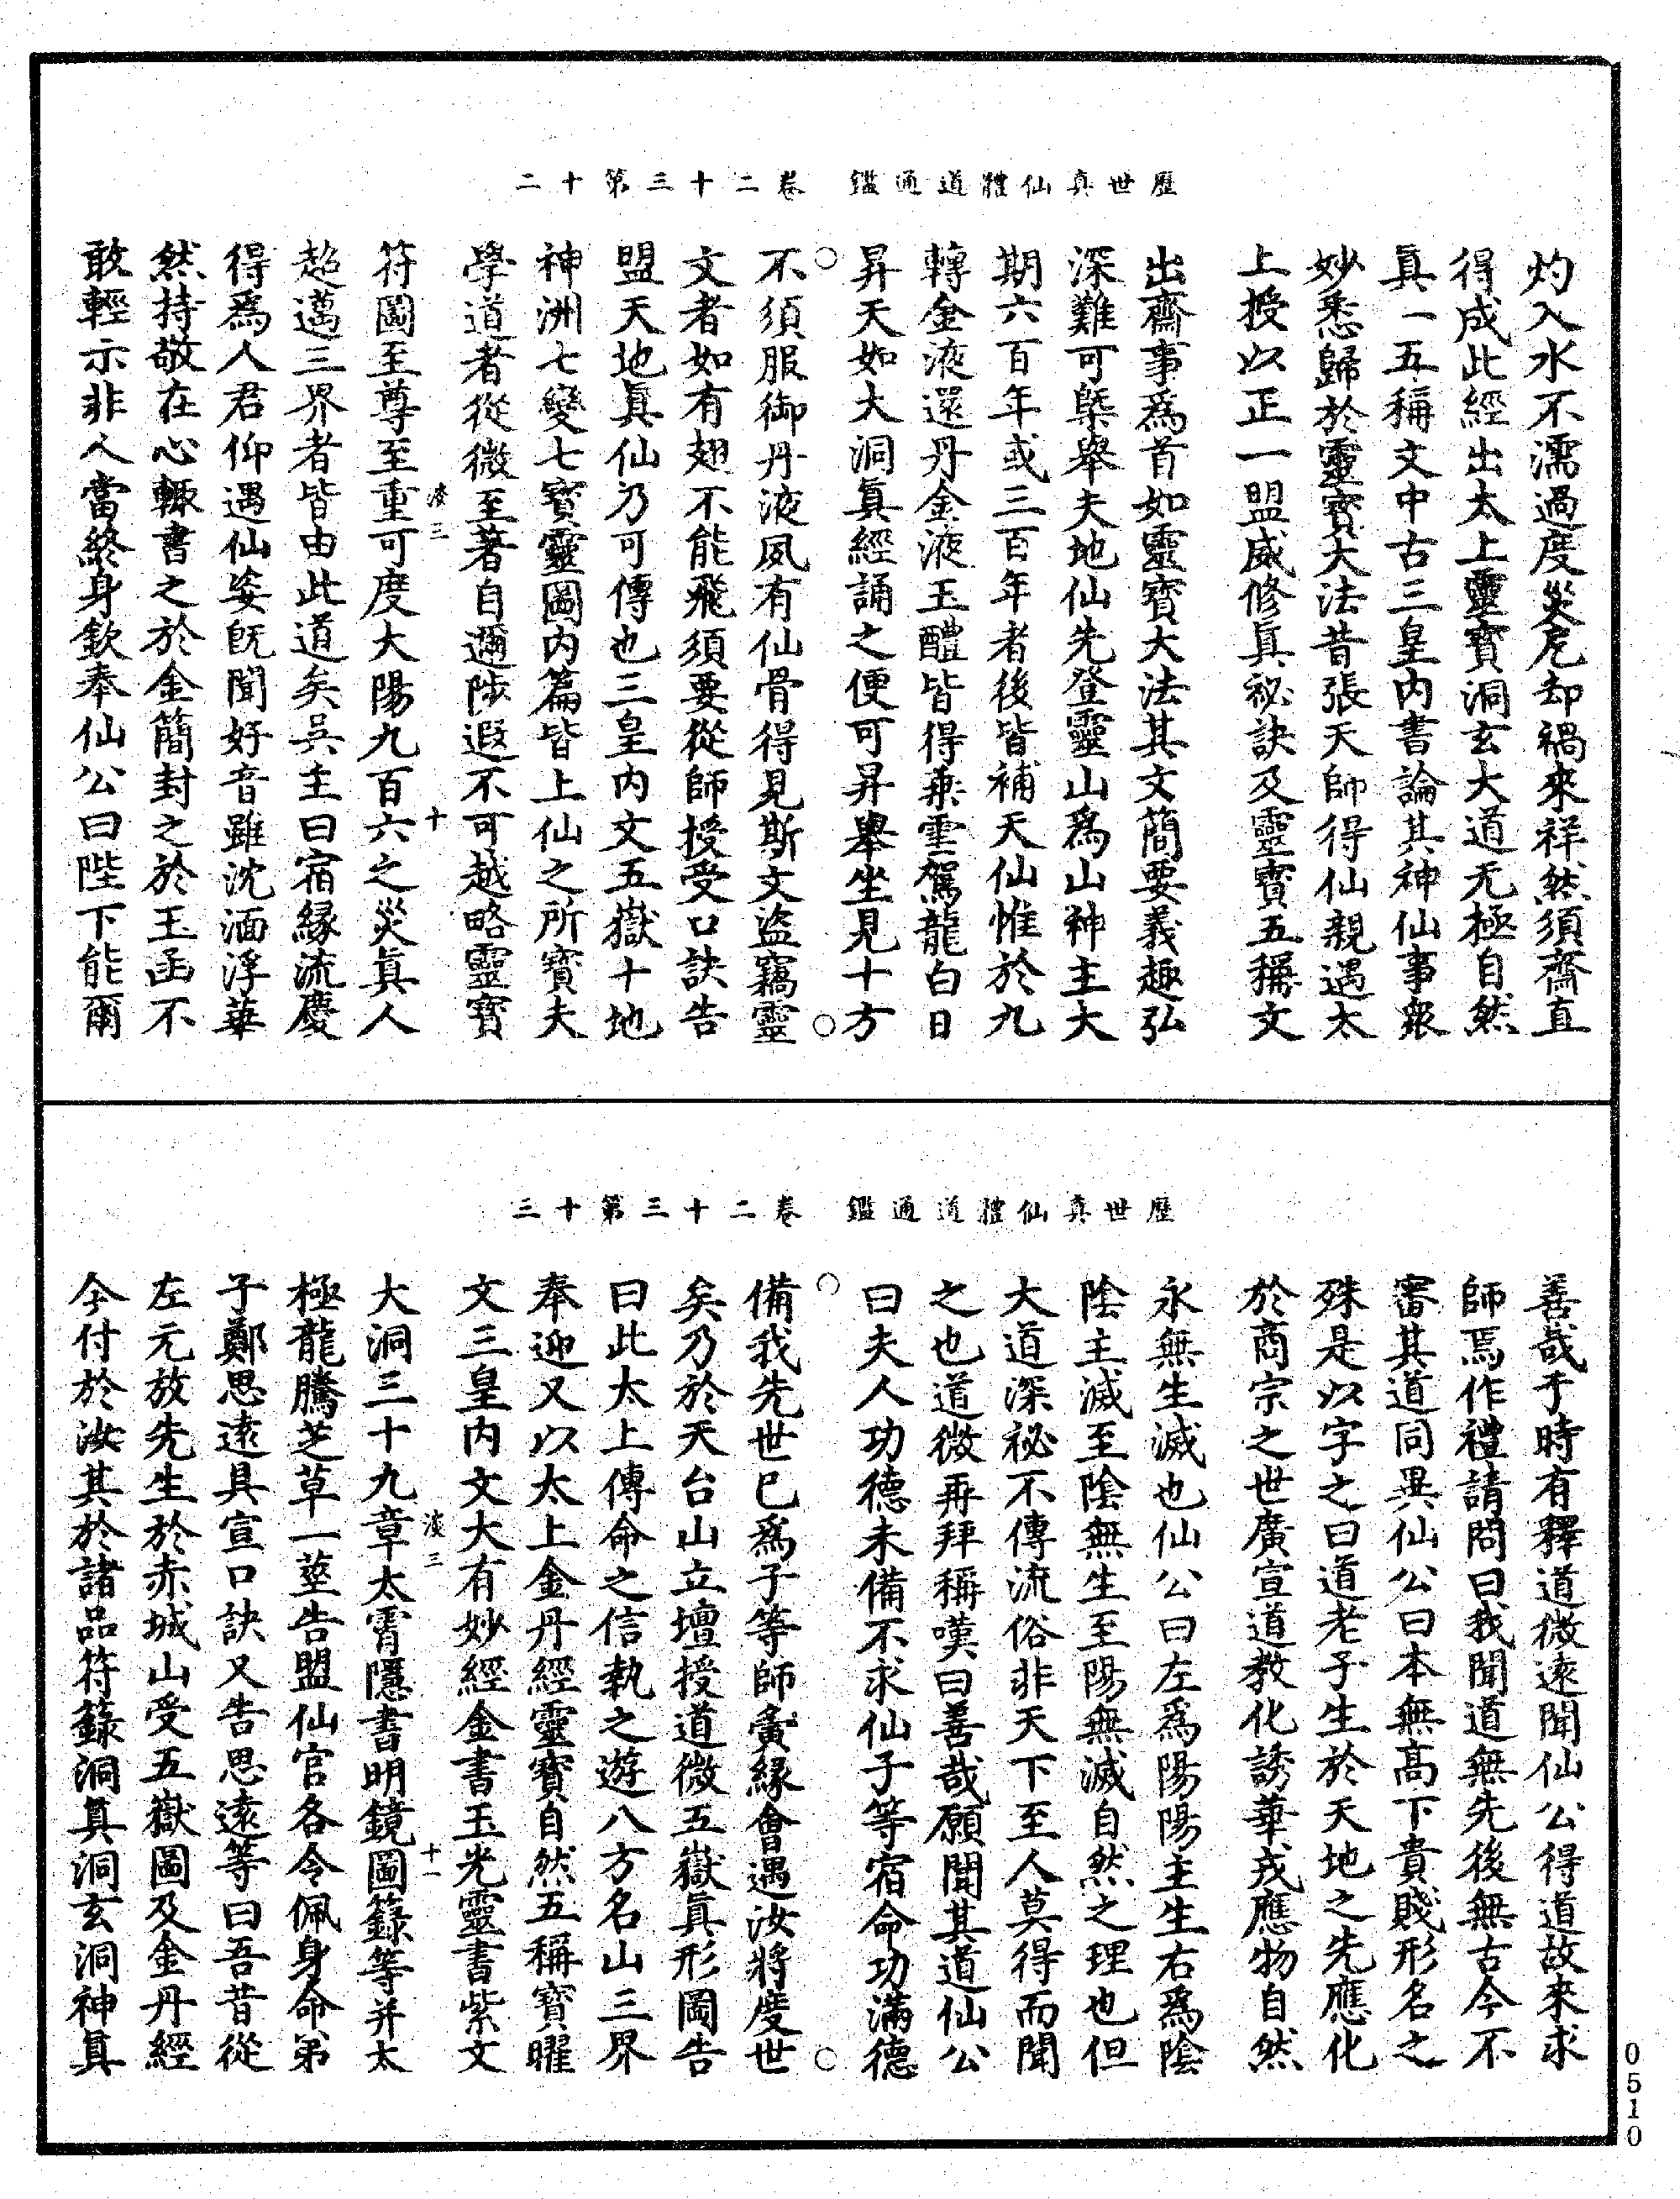 歷世真仙體道通鑑　卷二十三第十二
灼入水不濡過度災戹却禍來祥然須齋直
得成此經出太上靈寶洞玄大道无極自然
眞一五稱文中古三皇內書論其神仙事衆
妙悉歸於靈寶大法昔張天師得仙親遇太
上授以正一盟威修眞祕訣及靈寶五稱文
出齋事爲首如靈寶大法其文簡要義趣弘
深難可槩舉夫地仙先登靈山爲山神主大
期六百年或三百年者後皆補天仙惟於九
轉金液還丹金液玉醴皆得乗雲駕龍白日
昇天如大洞眞經誦之便可昇舉坐見十方
不須服御丹液夙有仙骨得見斯文盜竊靈
文者如有翅不能飛須要從師授受口訣告
盟天地眞仙乃可傳也三皇內文五嶽十地
神洲七變七寶靈圖內篇皆上仙之所寶夫
學道者從微至著自邇陟遐不可越略靈寶
淡三　十
符圖至尊至重可度大陽九百六之災眞人
超邁三界者皆由此道矣吳主曰宿緣流慶
得爲人君仰遇仙姿旣聞好音雖沈湎浮華
然持敬在心輙書之於金簡封之於玉函不
敢輕示非人當終身欽奉仙公曰陛下能爾
歷世真仙體道通鑑　卷二十三第十三
善哉于時有釋道微遠聞仙公得道故來求
師焉作禮請問曰我聞道無先後無古今不
審其道同異仙公曰本無高下貴賤形名之
殊是以字之曰道老子生於天地之先應化
於商宗之世廣宣道教化誘華戎應物自然
永無生滅也仙公曰左爲陽陽主生右爲陰
陰主滅至陰無生至陽無滅自然之理也但
大道深祕不傳流俗非天下至人莫得而聞
之也道微再拜稱嘆曰善哉願聞其道仙公
曰夫人功德未備不求仙子等宿命功滿德
備我先世已爲子等師夤緣會遇汝將度世
矣乃於天台山立壇授道微五嶽眞形圖告
曰此太上傳命之信執之遊八方名山三界
奉迎又以太上金丹經靈寶自然五稱寶曜
文三皇內文大有妙經金書玉光靈書紫文
淡三　十一
大洞三十九章太霄隱書明鏡圖籙等并太
極龍騰芝草一莖告盟仙官各令佩身命弟
子鄭思遠具宣口訣又告思遠等曰吾昔從
左元放先生於赤城山受五嶽圖及金丹經
今付於汝其於諸品符籙洞眞洞玄洞神眞
0510